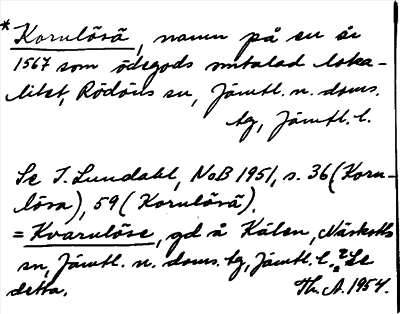 *Kornlösä, namn på en år
1567 som ödegods omtalad loka-
litet, Rödöns sn, Jämtl. n. doms.
tg, Jämtl. l.
Se I. Lundahl, NoB 1951, s. 36 (Korn-
lösa), 59 (Kornlösä).
= Kvarnlöse, gd å Kälen, Näskotts
sn, Jämtl. n. doms. tg, Jämtl. l. ? Se
detta. Th. A. 1954.